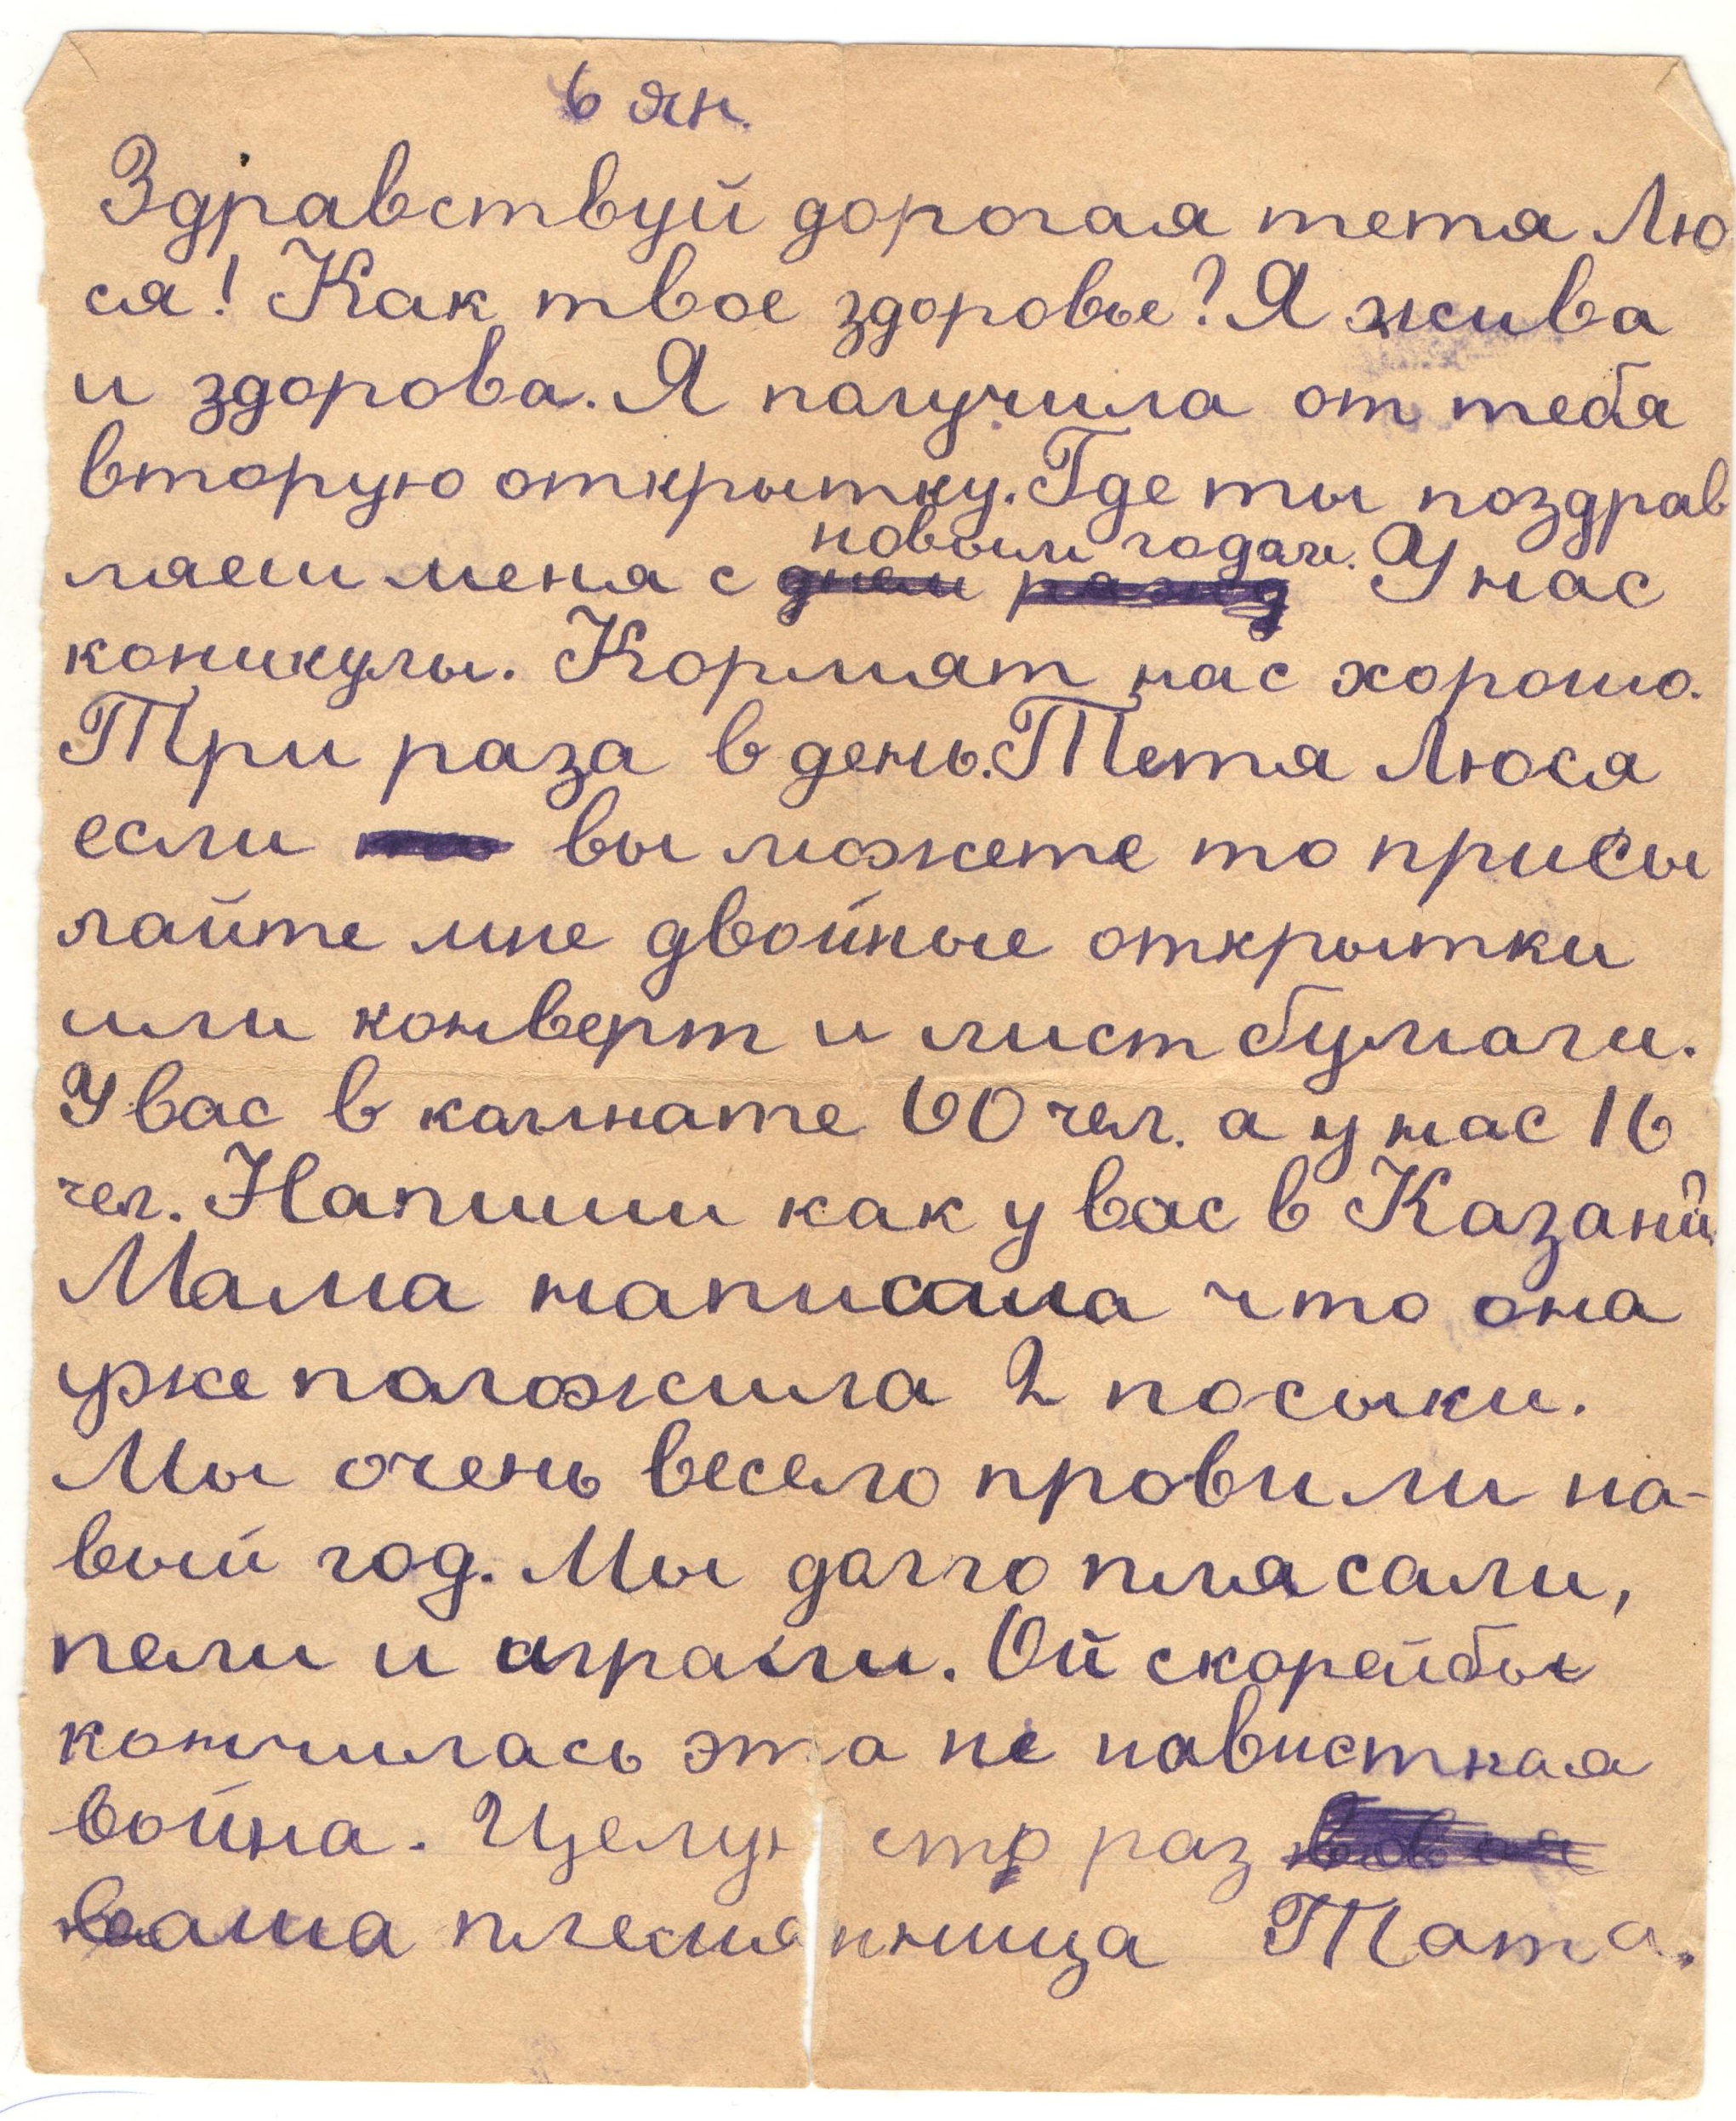 6 ян.
Здравствуй дорогая тетя Лю
ся! Как твое здоровье? Я жива
и здорова. Я получила от тебя
вторую открытку. Где ты поздрав
новым годом.
ляеш меня с днем рожд У нас
коникулы. Кормят нас хорошо.
Три раза в день. Тетя Люся
если вы можете то присы
лайте мне двойные открытки
или конверт и лист бумаги.
У вас в комнате 60 чел. а у нас 16
чел. Напиши как у вас в Казани?
Мама написала что она
уже положила 2 посыки.
Мы очень весело провили но-
вый год. Мы долго плясали,
пели и играли. Ой скорейбы
кончилась эта не навистная
война. Целую сто раз
ваша племянница Тата.